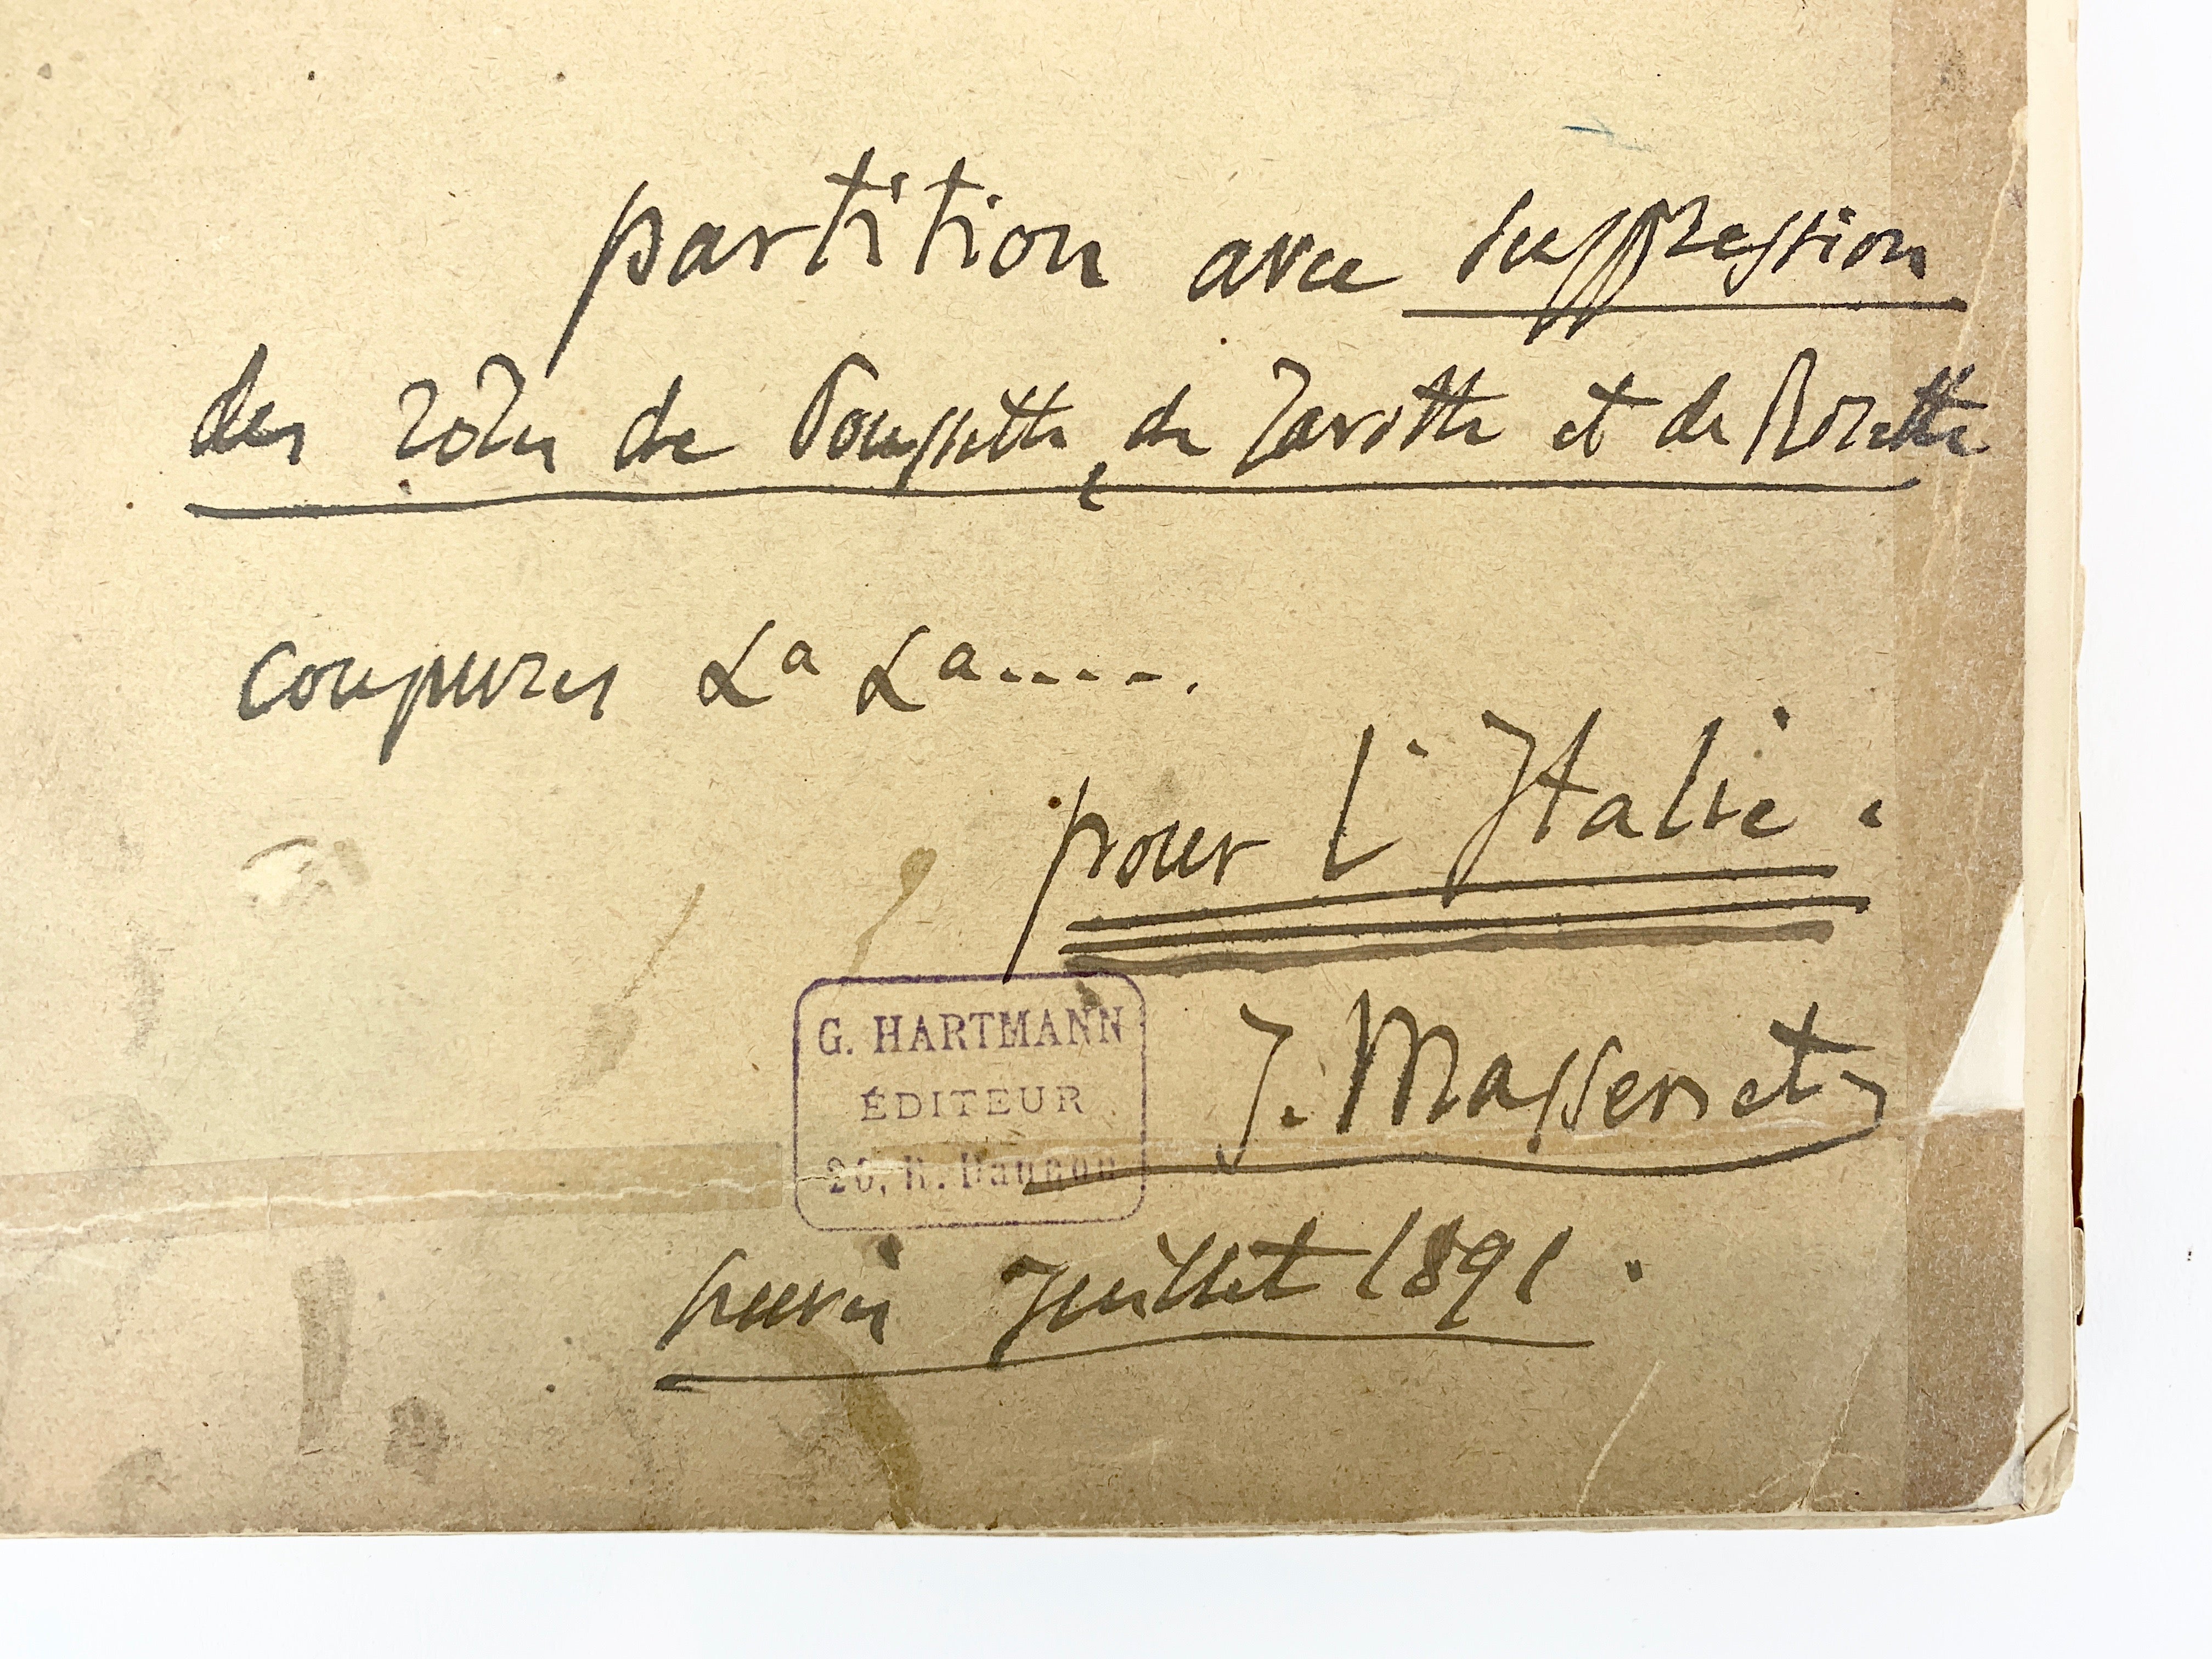 partition avec suppression
des rôles de Poussette, de Javotte et de Rosette
coupures La La.....
pour l'Italie.
G. HARTMANN
ÉDITEUR
20, R. Daunou
J. Massenet
Paris Juillet 1891.